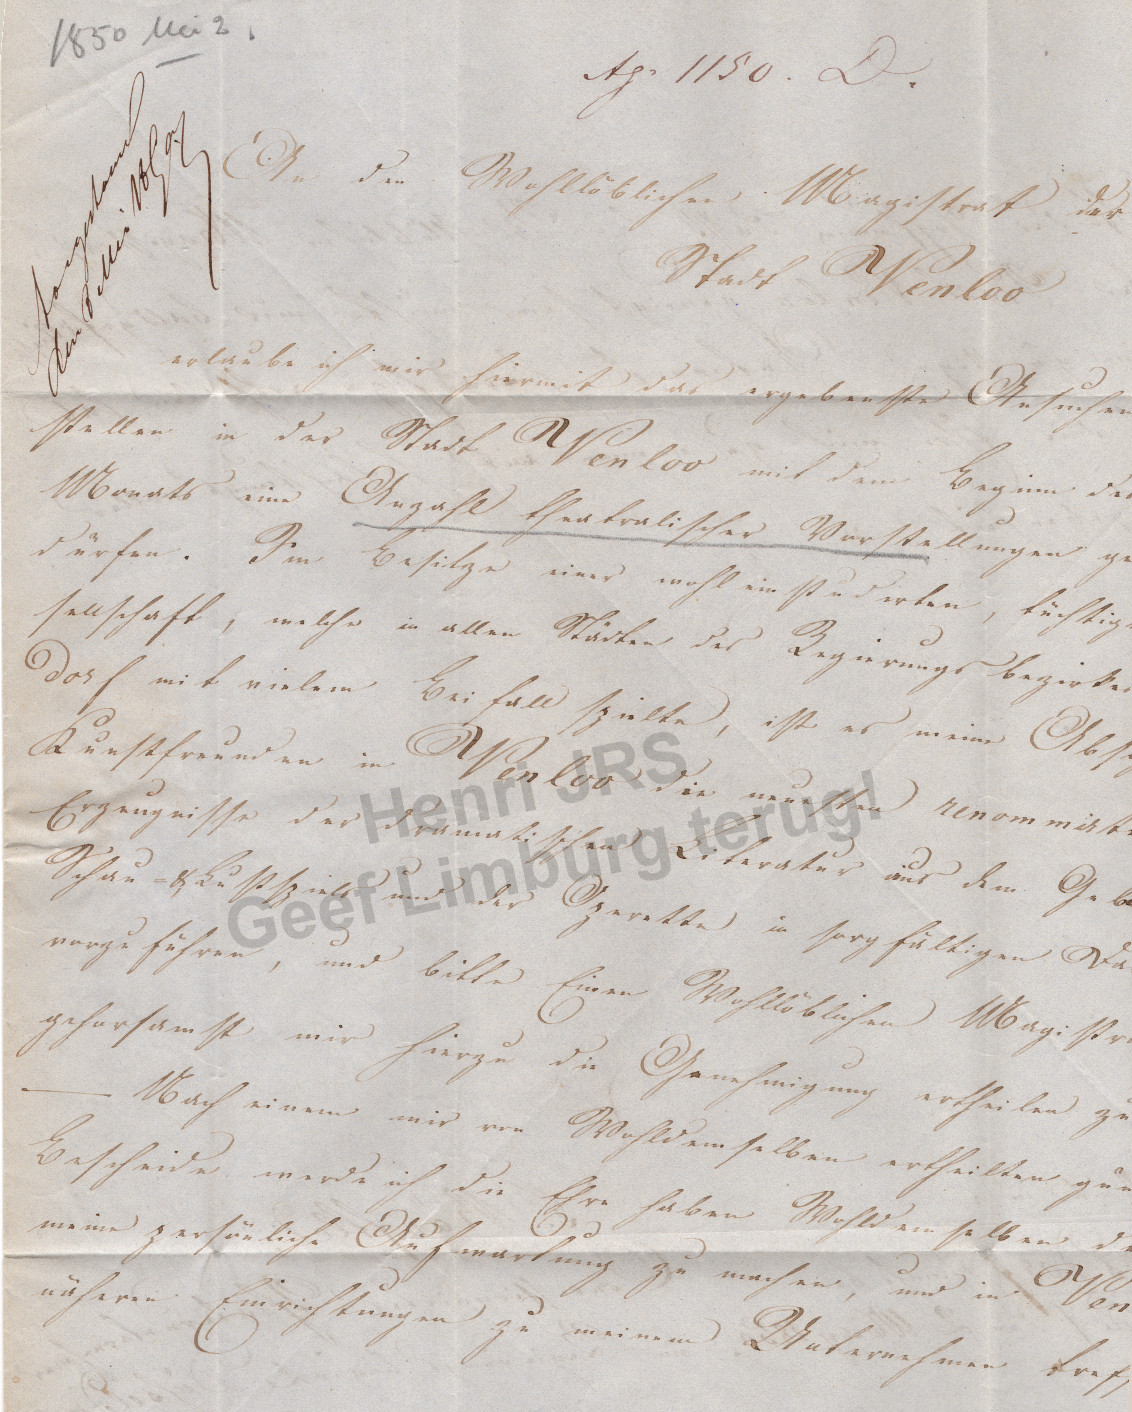 1850 Mei 2.
Ag. 1150. D.
den Mei 1850
An den Wohllöblichen Magistrat der
Stadt Venloo
erlaube ich mir hiermit das ergebenste Ansuchen
stellen in der Stadt Venloo mit dem Beginn des
Monats eine Anzahl theatralischer Vorstellungen ge
dürfen. Im Besitze einer wohl einstudierten, tüchtig
sellschaft, welche in allen Städten des Regierungsbezirkes
dorf mit vielem Beifall spielte, ist es meine Abs
Kunstfreunden in Venloo die neuesten renommirte
Erzeugnisse der dramatischen Literatur aus dem Geb
Schau- & Lustspiels und der Operette in sorgfältigen Da
vorzuführen, und bitte Einen Wohllöblichen Magistra
gehorsamst mir hierzu die Genehmigung ertheilen zu
— Nach einem mir von Wohldemselben ertheilten gün
Bescheide werde ich die Ehre haben Wohldemselben de
meine persönliche Aufwartung zu machen, und in Ven
näheren Einrichtungen zu meinem Unternehmen tref
Henri JRS
Geef Limburg terug!